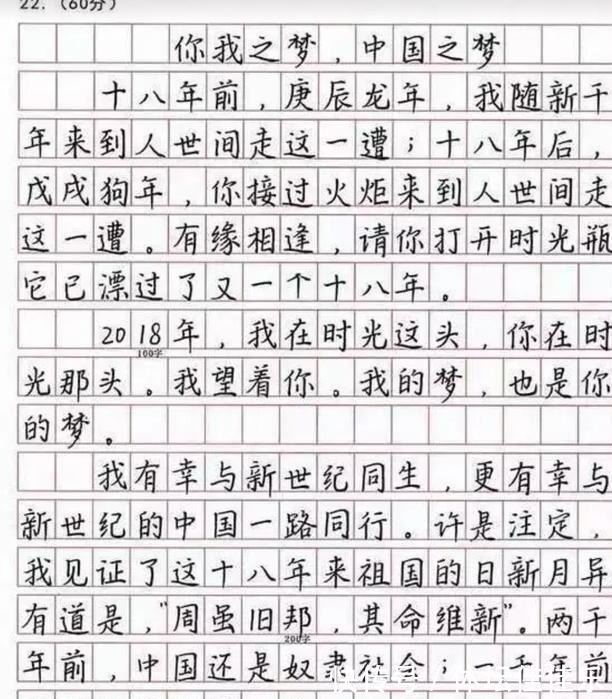 22.（60分）
你我之梦，中国之梦
十八年前，庚辰龙年，我随新千
年来到人世间走这一遭；十八年后，
戊戌狗年，你接过火炬来到人世间走
这一遭。有缘相逢，请你打开时光瓶
它已漂过了又一个十八年。
2018年，我在时光这头，你在时
100字
光那头。我望着你。我的梦，也是你
的梦。
我有幸与新世纪同生，更有幸与
新世纪的中国一路同行。许是注定，
我见证了这十八年来祖国的日新月异
有道是，"周虽旧邦，其命维新"。两千
200字
年前，中国还是奴隶社会；一千年前